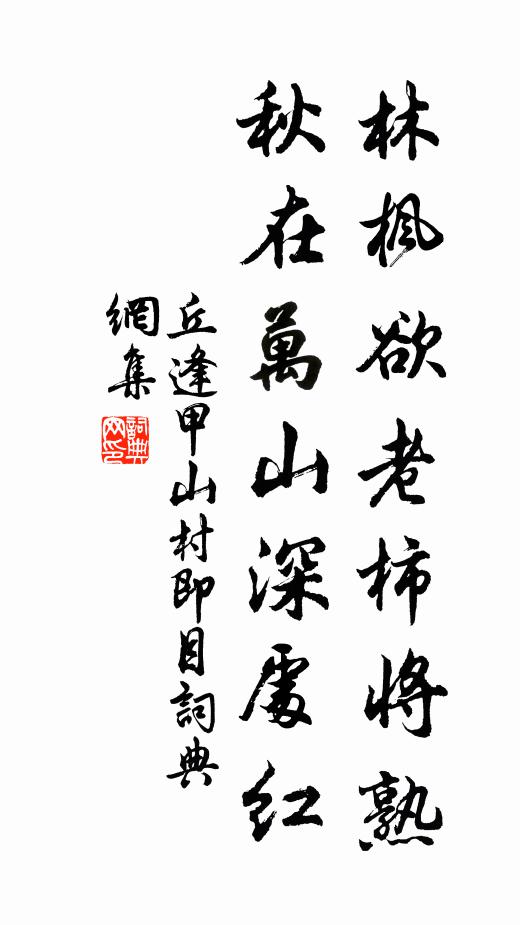 林楓欲老柿將熟
秋在萬山深處紅
丘逢甲山村即目詞典
網集
詞典
网印